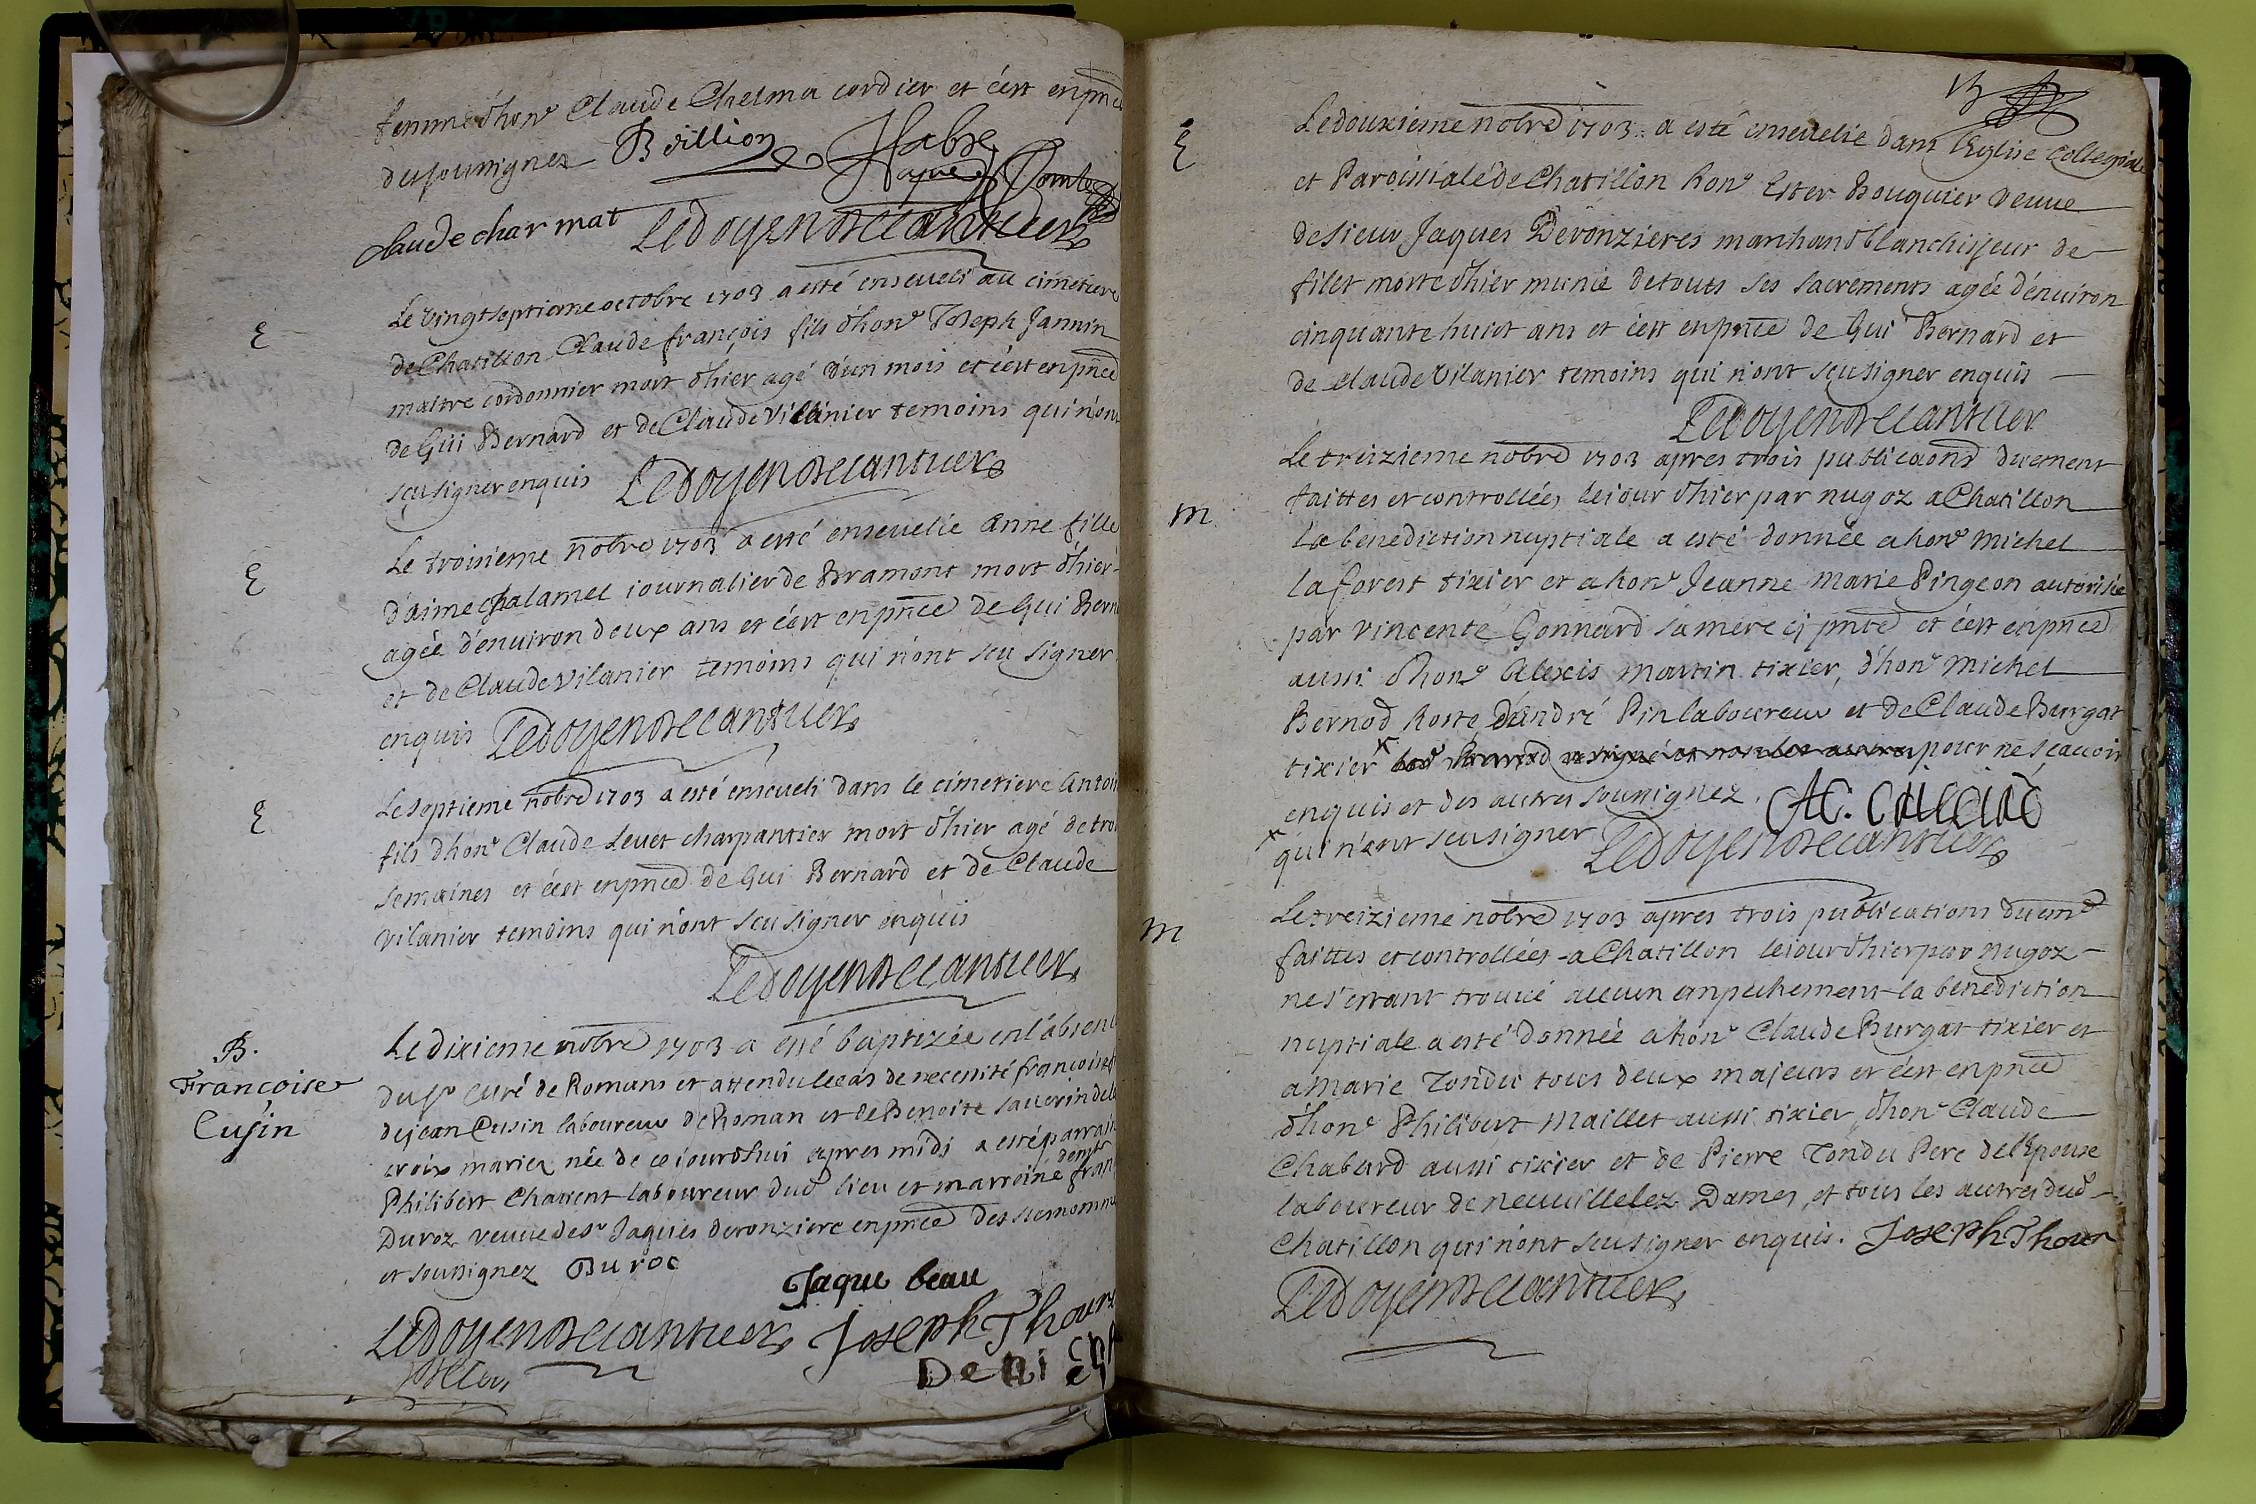 femme d'hon^e Claude Chelma cordier et c'est en pnce
des soussignez B Villion Fabre
Comte
claude charmat Le doyen
E
Le vingtseptieme octobre 1703 a esté enseveli au cimetiere
de Chatillon Claude françois fils d'hon^e Joseph Jannin
maitre cordonnier mort d'hier agé d'un mois et c'est en pnce
de Gui Bernard et de Claude Vilanier temoins qui n'ont
sçu signer enquis Le doyen
E
Le troisieme nobre 1703 a esté ensevelie Anne fille
d'aime chalamel iournalier de Bramont mort d'hier
agée d'environ deux ans et c'est en pnce de Gui Bern
et de Claude Vilanier temoins qui n'ont sçu signer
enquis Le doyen
E
Le septieme nobre 1703 a esté enseveli dans le cimetiere Antoi
fils d'hon^e Claude Levet charpantier mort d'hier agé de troi
semaines et c'est en pnce de Gui Bernard et de Claude
Vilanier temoins qui n'ont sçu signer enquis
Le doyen
B.
Françoise
Cusin
Le dixieme nobre 1703 a esté baptizée en l'absen
du s^r Curé de Romans et attendu le cas de necessité françoise
de jean Cusin laboureur de Roman et de Benoite saverin de l
croix mariez née de ce iourd'hui apres midi a esté parrain
Philibert Chavent laboureur dud lieu et marroine dem^lle fran
Duroz veuve de s^r Jaques deronziere en pnce des susnommé
et soussignez Duroc
Jaque beau
Le doyen Joseph Thour
Deni
13
E
Le douzieme nobre 1703 a esté ensevelie dans l'Eglise Collegiale
et Paroissiale de Chatillon hon^e Ester Bouquier veuve
de sieur Jaques Deronzieres marchand blanchisseur de
filet morte d'hier munie de touts ses sacrements agée d'environ
cinquante huict ans et c'est en pnce de Gui Bernard et
de claude Vilanier temoins qui n'ont sçu signer enquis
Le doyen
m
Le treizieme nobre 1703 apres trois publicaons duement
faittes et controllées le iour d'hier par nugoz a Chatillon
la benediction nuptiale a esté donnée a hon^e Michel
laforest tixier et a hon^e Jeanne Marie Pingeon autorisée
par Vincente Gonnard sa mere cy pnte et c'est en pnce
aussi d'hon^e Alexis Martin tixier, d'hon^e Michel
Bernod hoste d'André Pin laboureur et de Claude Burgat
tixier x pour ne sçavoir
enquis et des autres soussignez.
x qui n'ont sçu signer Le doyen
m
Le treizieme nobre 1703 apres trois publications duem^t
faittes et controllées a Chatillon le iour d'hier par nugoz
ne s'etant trouvé aucun empechement la benediction
nuptiale a esté donnée a hon^e Claude Burgat tixier et
a Marie Tondu tous deux majeurs et c'est en pnce
d'hon^e Philibert Maillet aussi tixier, d'hon^e Claude
Chabard aussi tixier et de Pierre Tondu Pere de l'Epouse
laboureur de neuville lez Dames, et tous les autres dud
Chatillon qui n'ont sçu signer enquis. Joseph Thour
Le doyen